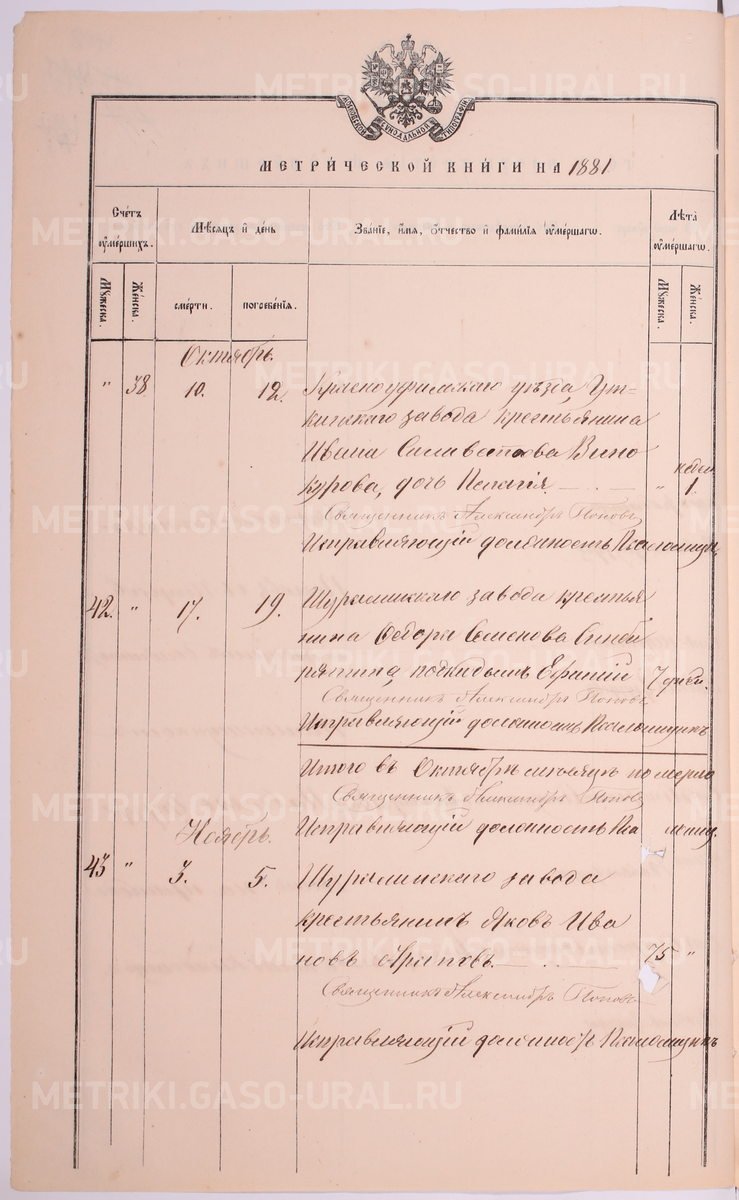 МОСКОВСКОЙ СѴНОДАЛЬНОЙ ТИПОГРАФІИ
МЕТРИ́ЧЕСКОЙ КНИ́ГИ НА 1881
Счетъ
ᲂумершихъ.
Мѣсяцъ и день
Званіе, имя, отчество и фамилія ᲂумершагѡ.
Лѣта
ᲂумершагѡ.
Мужеска.
Женска.
смерти.
погребенія.
Мужеска.
Женска.
Октябрь.
" 38 10. 12. Красноуфимскаго уѣзда, Ут=
кинскаго завода крестьянина
Ивана Силивестрова Вино
курова, дочь Пелагія. " недѣл. 1.
Священникъ Александръ Поповъ
Исправляющій должность Псаломщик
42. " 17. 19. Шуралинскаго завода крестья
нина Ѳедора Семенова
подкидышъ 7 дней.
Священникъ Александръ Поповъ
Исправляющій должность Псаломщикъ
Итого въ Октябрѣ мѣсяцѣ померло
Священникъ Александръ Поповъ
Исправляющій должность Пса ломщ.
Ноябрь.
43 " 3. 5. Шуралинскаго завода
крестьянинъ Яковъ Ива
новъ Араповъ. 75 "
Священникъ Александръ Поповъ
Исправляющій должность Псаломщикъ
METRIKI.GASO-URAL.RU